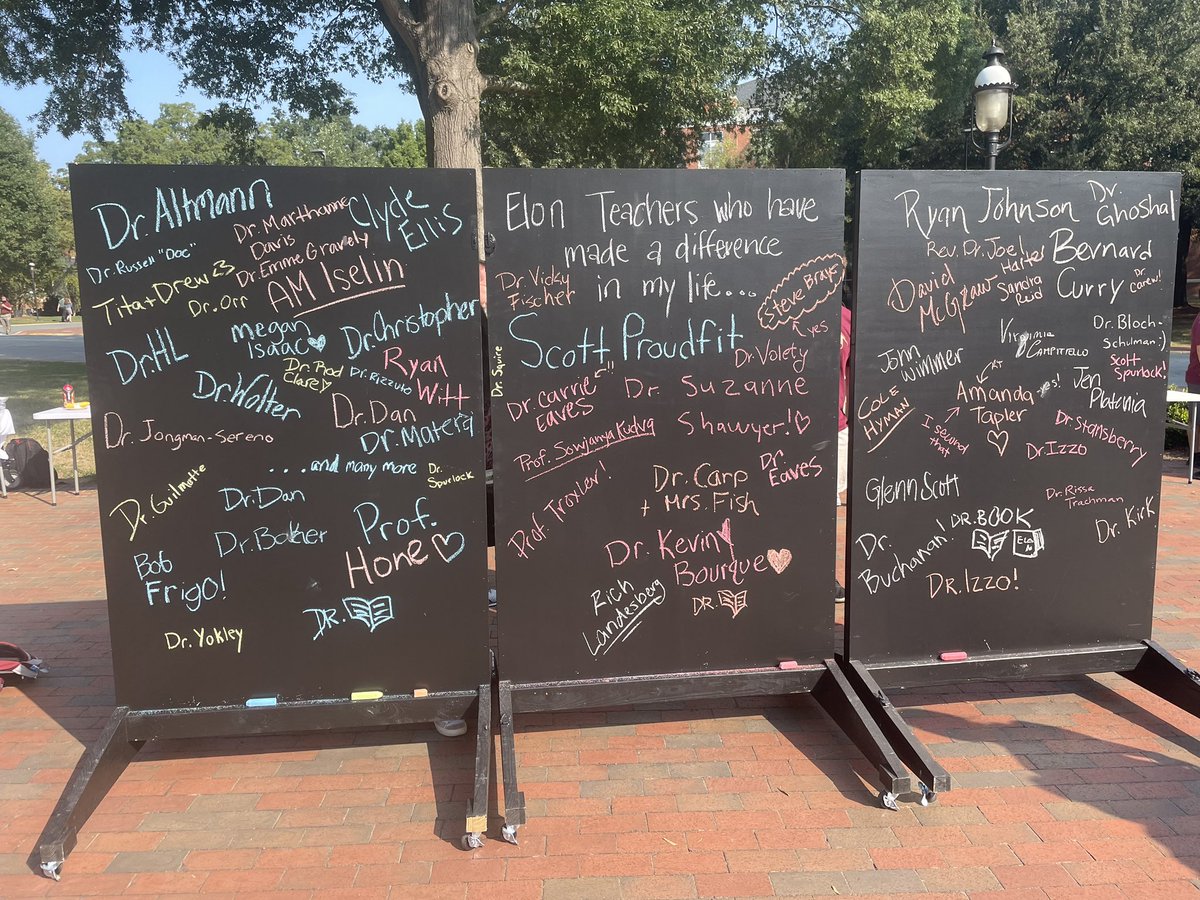 Dr. Altmann
Dr. Marthanne
Davis
Clyde
Ellis
Dr. Russell "Doc"
Dr. Emme Gravely
Tita + Drew <3
Dr. Orr
AM Iselin
Dr. HL
megan
Isaac
Dr. Christopher
Dr. Prod
Clarey
Dr. Rizzuto
Ryan
Witt
Dr. Wolter
Dr. Dan
Dr. Matera
Dr. Jongman-Sereno
...and many more
Dr.
Spurlock
Dr. Guilmette
Dr. Dan
Prof.
Hone
Dr. Baker
Bob
Frigo!
DR.
Dr. Yokley
Elon Teachers who have
made a difference
in my life...
Dr. Vicky
Fischer
Steve Brays
yes
Scott Proudfit
Dr. Squire
Dr. Volety
Dr. Carrie
Eaves
Dr. Suzanne
Shawyer!
Prof. Sowjanya Kudva
Dr.
Eaves
Prof Troxler!
Dr. Carp
+ Mrs. Fish
Dr. Kevin
Bourque
Rich
Landesberg
DR.
Ryan Johnson
Dr.
Ghoshal
Rev. Dr. Joel
Harter
Bernard
Curry
Dr
Carew!
David
McGraw
Sandra
Reid
Virginia
Campitello
Dr. Bloch-
Schulman :)
John
Wimmer
Scott
Spurlock!
Cole
Hyman
Amanda
Tapler
yes!
Jen
Platania
I second
that
Dr. Stansberry
Dr. Izzo
Glenn Scott
Dr. Rissa
Trachman
Dr. Kirk
Dr.
Buchanan!
DR. BOOK
Dr. Izzo!